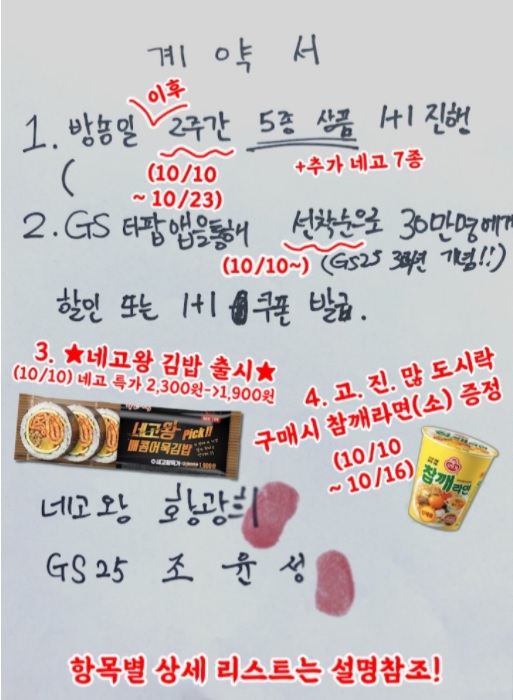 계 약 서
이후
1. 방송일 2주간 5종 상품 1+1 진행
(
(10/10
~ 10/23)
+추가 네고 7종
2. GS 더팝 앱을통해 선착순으로 30만명에게
(10/10~)
(GS25 30주년 기념!!)
할인 또는 1+1 쿠폰 발급.
3. ★네고왕 김밥 출시★
(10/10) 네고 특가 2,300원->1,900원
네고왕 Pick!!
매콤어묵김밥
4. 고. 진. 많 도시락
구매시 참깨라면(소) 증정
(10/10
~ 10/16)
참깨라면
네고왕 황광희
GS25 조 윤 성
항목별 상세 리스트는 설명참조!